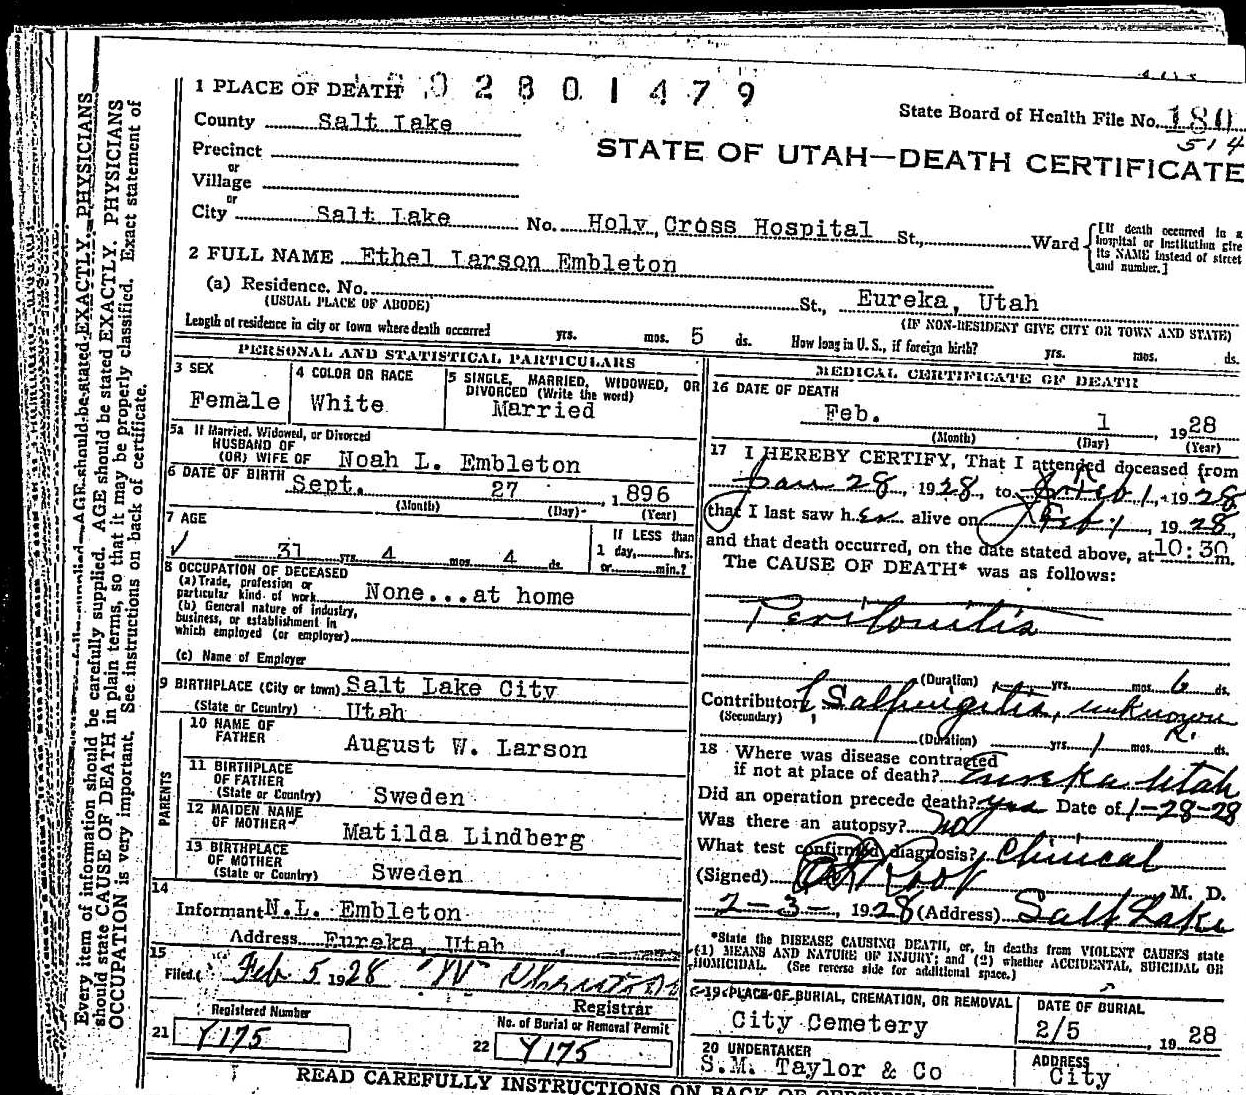 1 PLACE OF DEATH 02801479
State Board of Health File No. 180
514
County Salt Lake
STATE OF UTAH—DEATH CERTIFICATE
Precinct
or
Village
or
City Salt Lake No. Holy Cross Hospital St., Ward
[If death occurred in a hospital or institution give its NAME instead of street and number.]
2 FULL NAME Ethel Larson Embleton
(a) Residence. No. St., Eureka, Utah
(USUAL PLACE OF ABODE) (IF NON-RESIDENT GIVE CITY OR TOWN AND STATE)
Length of residence in city or town where death occurred yrs. mos. 5 ds. How long in U. S., if foreign birth? yrs. mos. ds.
PERSONAL AND STATISTICAL PARTICULARS
3 SEX
Female
4 COLOR OR RACE
White
5 SINGLE, MARRIED, WIDOWED, OR
DIVORCED (Write the word)
Married
5a If Married, Widowed, or Divorced
HUSBAND OF
(OR) WIFE OF Noah L. Embleton
6 DATE OF BIRTH Sept. 27, 1896
(Month) (Day) (Year)
7 AGE
31 yrs. 4 mos. 4 ds.
If LESS than
1 day, hrs.
or min.?
8 OCCUPATION OF DECEASED
(a) Trade, profession or
particular kind of work None...at home
(b) General nature of industry,
business, or establishment in
which employed (or employer)
(c) Name of Employer
9 BIRTHPLACE (City or town) Salt Lake City
(State or Country) Utah
PARENTS
10 NAME OF
FATHER August W. Larson
11 BIRTHPLACE
OF FATHER
(State or Country) Sweden
12 MAIDEN NAME
OF MOTHER Matilda Lindberg
13 BIRTHPLACE
OF MOTHER
(State or Country) Sweden
14
Informant N.L. Embleton
Address Eureka, Utah
15
Filed Feb 5 1928
Registrar
Registered Number
21 Y175
No. of Burial or Removal Permit
22 Y175
MEDICAL CERTIFICATE OF DEATH
16 DATE OF DEATH
Feb. 1, 1928
(Month) (Day) (Year)
17 I HEREBY CERTIFY, That I attended deceased from
Jan 28, 1928, to Feb 1, 1928,
that I last saw her alive on Feb 1, 1928,
and that death occurred, on the date stated above, at 10:30 m.
The CAUSE OF DEATH* was as follows:
Peritonitis
(Duration) yrs. mos. 6 ds.
Contributory Salpingitis, unknown
(Secondary)
(Duration) yrs. 1 mos. ds.
18 Where was disease contracted
if not at place of death? Eureka Utah
Did an operation precede death? yes Date of 1-28-28
Was there an autopsy? no
What test confirmed diagnosis? Clinical
(Signed) M. D.
2-3-, 1928 (Address) Salt Lake
*State the DISEASE CAUSING DEATH, or, in deaths from VIOLENT CAUSES state
(1) MEANS AND NATURE OF INJURY; and (2) whether ACCIDENTAL, SUICIDAL OR
HOMICIDAL. (See reverse side for additional space.)
19 PLACE OF BURIAL, CREMATION, OR REMOVAL
City Cemetery
DATE OF BURIAL
2/5, 1928
20 UNDERTAKER
S.M. Taylor & Co
ADDRESS
City
READ CAREFULLY INSTRUCTIONS ON BACK OF
AGE should be stated EXACTLY. PHYSICIANS
Every item of information should be carefully supplied. AGE should be stated EXACTLY. PHYSICIANS
should state CAUSE OF DEATH in plain terms, so that it may be properly classified. Exact statement of
OCCUPATION is very important. See instructions on back of certificate.